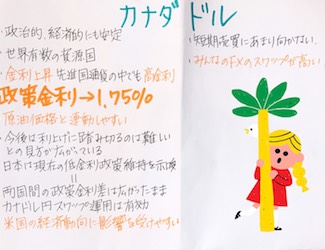 カナダドル
・政治的、経済的にも安定
・世界有数の資源国
・金利上昇 先進国通貨の中でも高金利
政策金利→1.75%
原油価格と連動しやすい
・今後は利上げに踏み切るのは難しい
との見方が広がっている
日本は現在の低金利政策維持を示唆
=
両国間の政策金利差は広がったまま
カナドル円スワップ運用は有効
米国の経済動向に影響を受けやすい
・短期売買にあまり向かない
・みんなのFXのスワップが高い